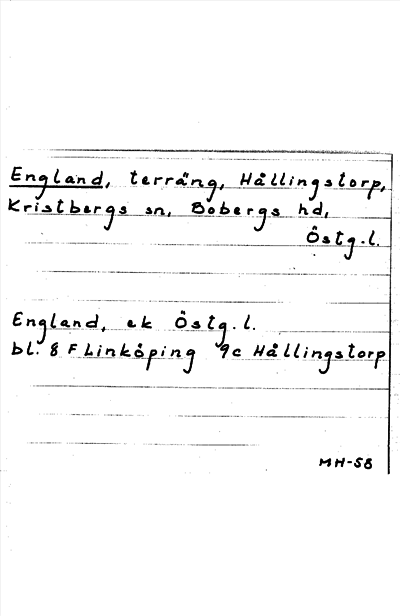 England, terräng, Hållingstorp,
Kristbergs sn, Bobergs hd,
Östg.l.
England, ek Östg.l.
bl. 8 F Linköping 9c Hållingstorp
MH-58